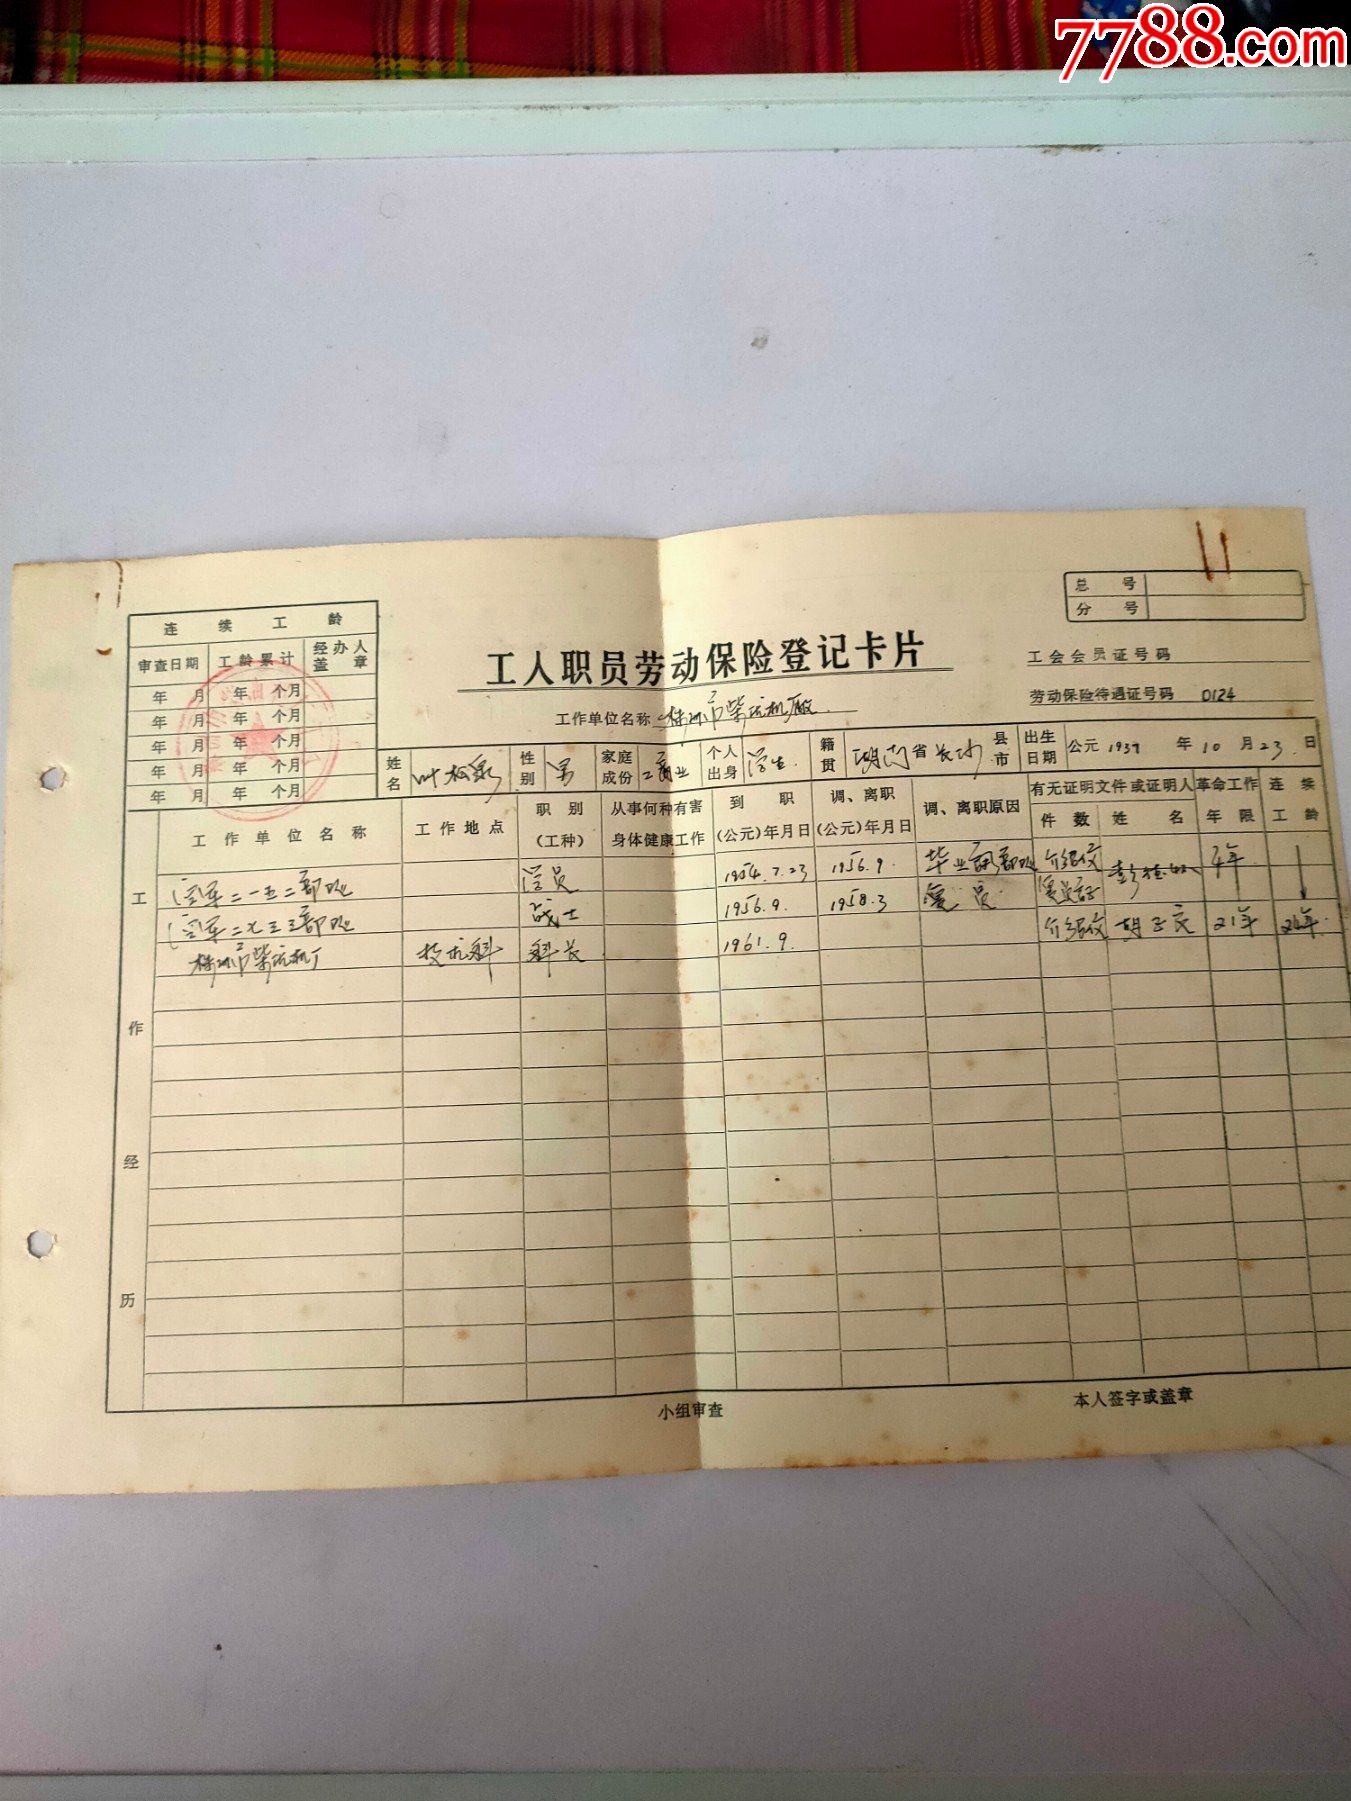 7788.com
总 号
分 号
工人职员劳动保险登记卡片
工会会员证号码
劳动保险待遇证号码 0124
工作单位名称 株洲市柴油机厂
连 续 工 龄
审查日期 工龄累计 经办人盖章
年 月 年 个月
年 月 年 个月
年 月 年 个月
年 月 年 个月
年 月 年 个月
姓名 叶松泉 性别 男 家庭成份 工商业 个人出身 学生 籍贯 湖南省长沙县市 出生日期 公元1937年10月23日
工作经历
工作单位名称 工作地点 职别(工种) 从事何种有害身体健康工作 到职(公元)年月日 调、离职(公元)年月日 调、离职原因 有无证明文件或证明人 件数 姓名 革命工作年限 连续工龄
空军二一五二部队 学员 1954.7.23 1956.9. 毕业 介绍信 4年
空军二七三三部队 战士 1956.9. 1958.3 复员 复员证
株洲市柴油机厂 技术科 科长 1961.9. 介绍信 胡 21年
小组审查
本人签字或盖章